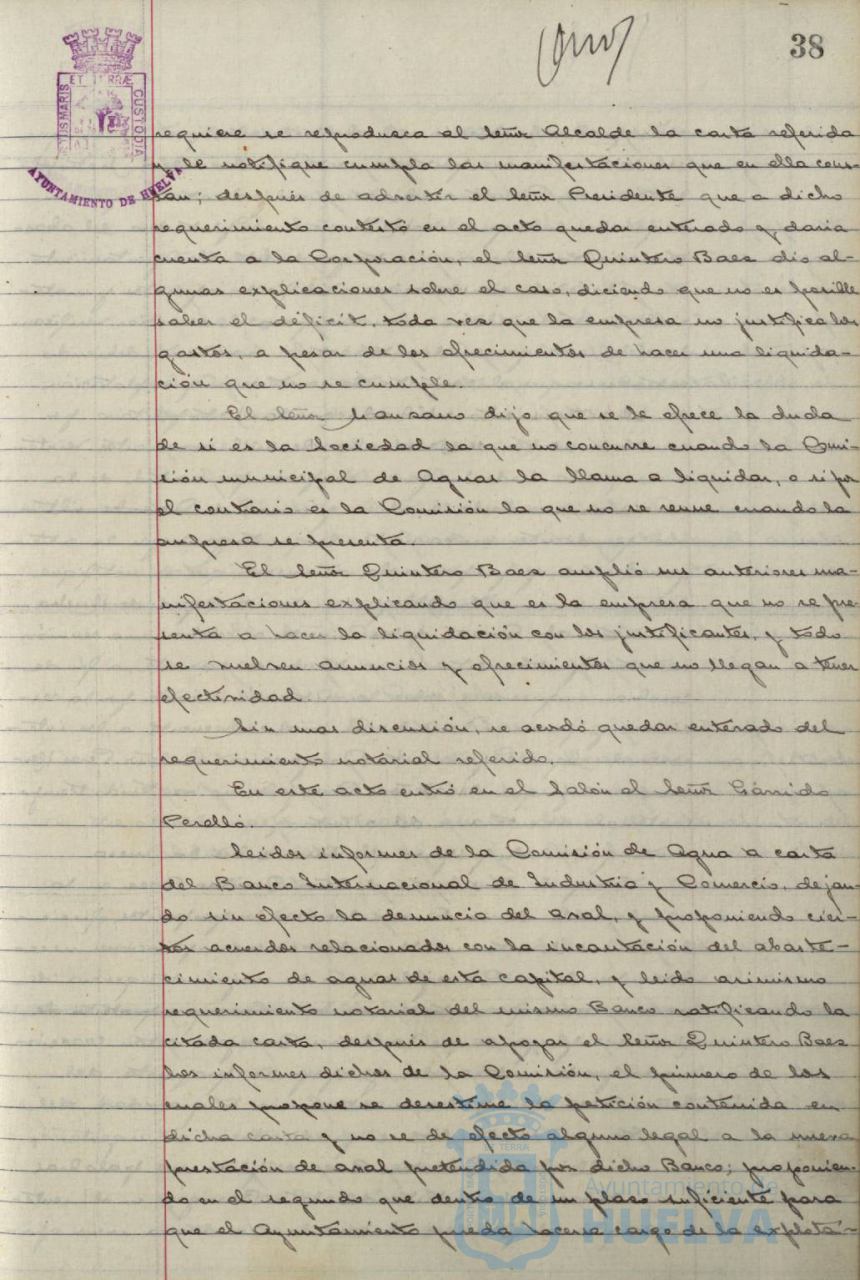 38
ET TERRÆ
PORTUS MARIS
CUSTODIA
AYUNTAMIENTO DE HUELVA
requiere se reprodusca al Señor Alcalde la carta referida
y le notifique cumpla las manifestaciones que en ella cons-
tan; después de advertir el Señor Presidente que a dicho
requerimiento contestó en el acto quedar enterado y daria
cuenta a la Corporación, el Señor Quintero Baez dio al-
gunas explicaciones sobre el caso, diciendo que no es posible
saber el déficit, toda vez que la empresa no justifica los
gastos, a pesar de los ofrecimientos de hacer una liquida-
ción que no se cumple.
El Señor Manzano dijo que se le ofrece la duda
de si es la Sociedad la que no concurre cuando la Comi-
sión municipal de Aguas la llama a liquidar, o si por
el contrario es la Comisión la que no se reune cuando la
empresa se presenta.
El Señor Quintero Baez amplió sus anteriores ma-
nifestaciones explicando que es la empresa que no se pre
senta a hacer la liquidación con los justificantes, y todo
se vuelven anuncios y ofrecimientos que no llegan a tener
efectividad
Sin mas discusión, se acordó quedar enterado del
requerimiento notarial referido.
En este acto entró en el Salón el Señor Garrido
Perelló.
Leidos informes de la Comisión de Agua a carta
del Banco Internacional de Industria y Comercio, dejan-
do sin efecto la denuncia del aval, y proponiendo cier-
tos acuerdos relacionados con la incautación del abaste-
cimiento de aguas de esta capital, y leido asimismo
requerimiento notarial del mismo Banco ratificando la
citada carta, después de apoyar el Señor Quintero Baez
los informes dichos de la Comisión, el primero de los
cuales propone se desestime la petición contenida en
dicha carta y no se de efecto alguno legal a la nueva
prestación de aval pretendida por dicho Banco; proponien-
do en el segundo que dentro de un plazo suficiente para
que el Ayuntamiento pueda hacerse cargo de la explota-
Ayuntamiento de
HUELVA